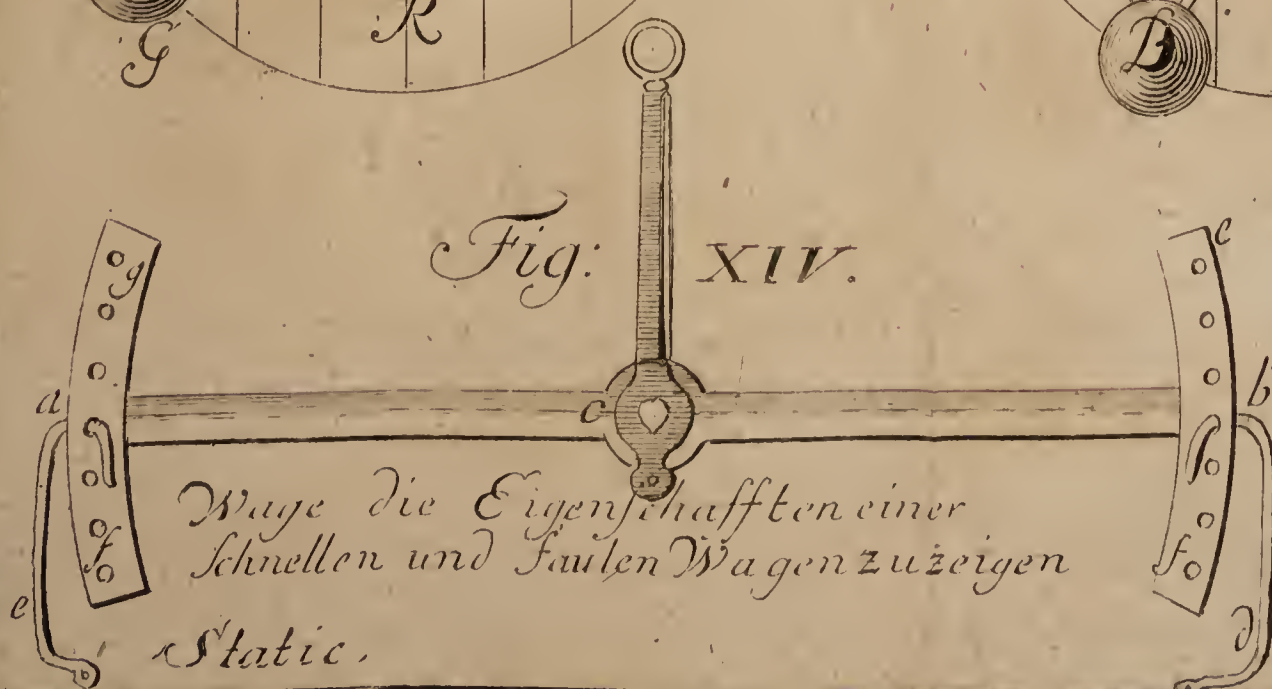 G R B
Fig: XIV.
g e
a c b
f f
e d
Wage die Eigenschafften einer
schnellen und faulen Wagen zu zeigen
Static.